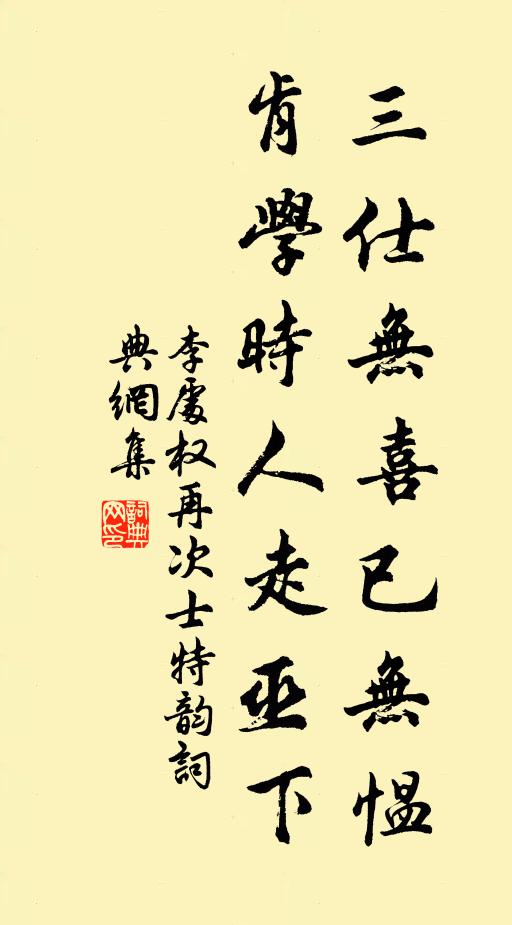 三仕無喜已無慍
肯學時人走巫下
李處权再次士特韵詞
典網集
詞典
网印